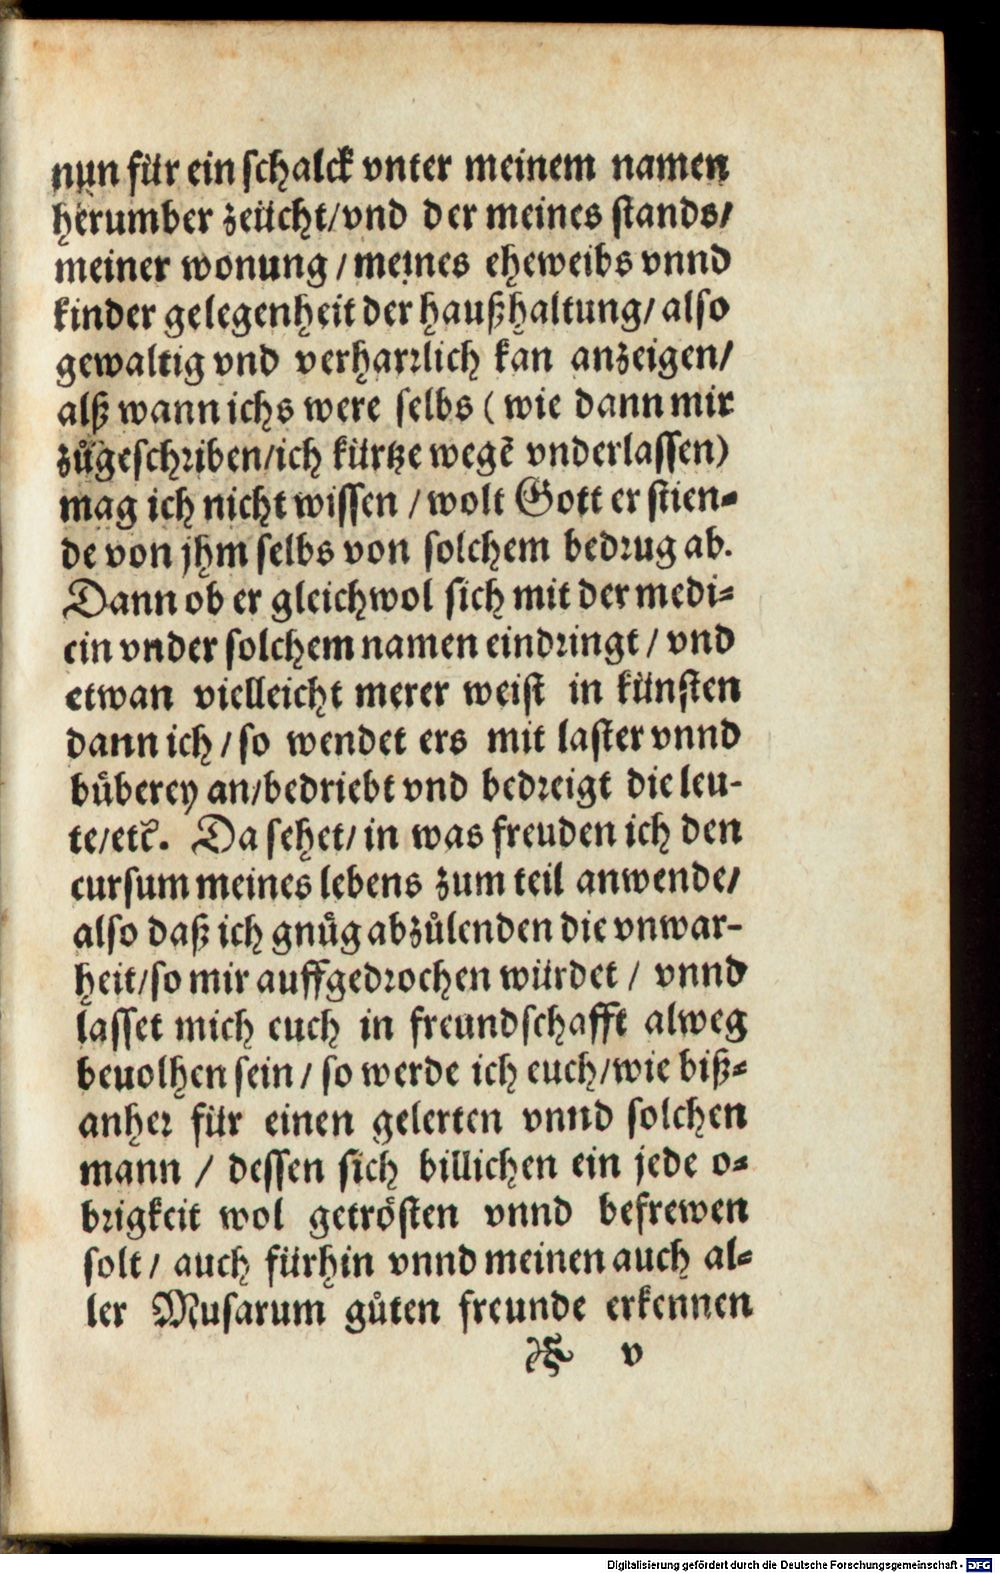 nun für ein schalck vnter meinem namen
herumber zeücht/vnd der meines stands/
meiner wonung/meines eheweibs vnnd
kinder gelegenheit der haußhaltung/also
gewaltig vnd verharrlich kan anzeigen/
alß wann ichs were selbs (wie dann mir
zůgeschriben/ich kürtze wegẽ vnderlassen)
mag ich nicht wissen/wolt Gott er stien⸗
de von jhm selbs von solchem bedrug ab.
Dann ob er gleichwol sich mit der medi⸗
cin vnder solchem namen eindringt/vnd
etwan vielleicht merer weist in künsten
dann ich/so wendet ers mit laster vnnd
bůberey an/bedriebt vnd bedreigt die leu-
te/etc̃. Da sehet/in was freuden ich den
cursum meines lebens zum teil anwende/
also daß ich gnůg abzůlenden die vnwar-
heit/so mir auffgedrochen würdet/vnnd
lasset mich euch in freundschafft alweg
beuolhen sein/so werde ich euch/wie biß⸗
anher für einen gelerten vnnd solchen
mann/dessen sich billichen ein jede o⸗
brigkeit wol getrösten vnnd befrewen
solt/auch fürhin vnnd meinen auch al⸗
ler Musarum gůten freunde erkennen
v
Digitalisierung gefördert durch die Deutsche Forschungsgemeinschaft - DFG